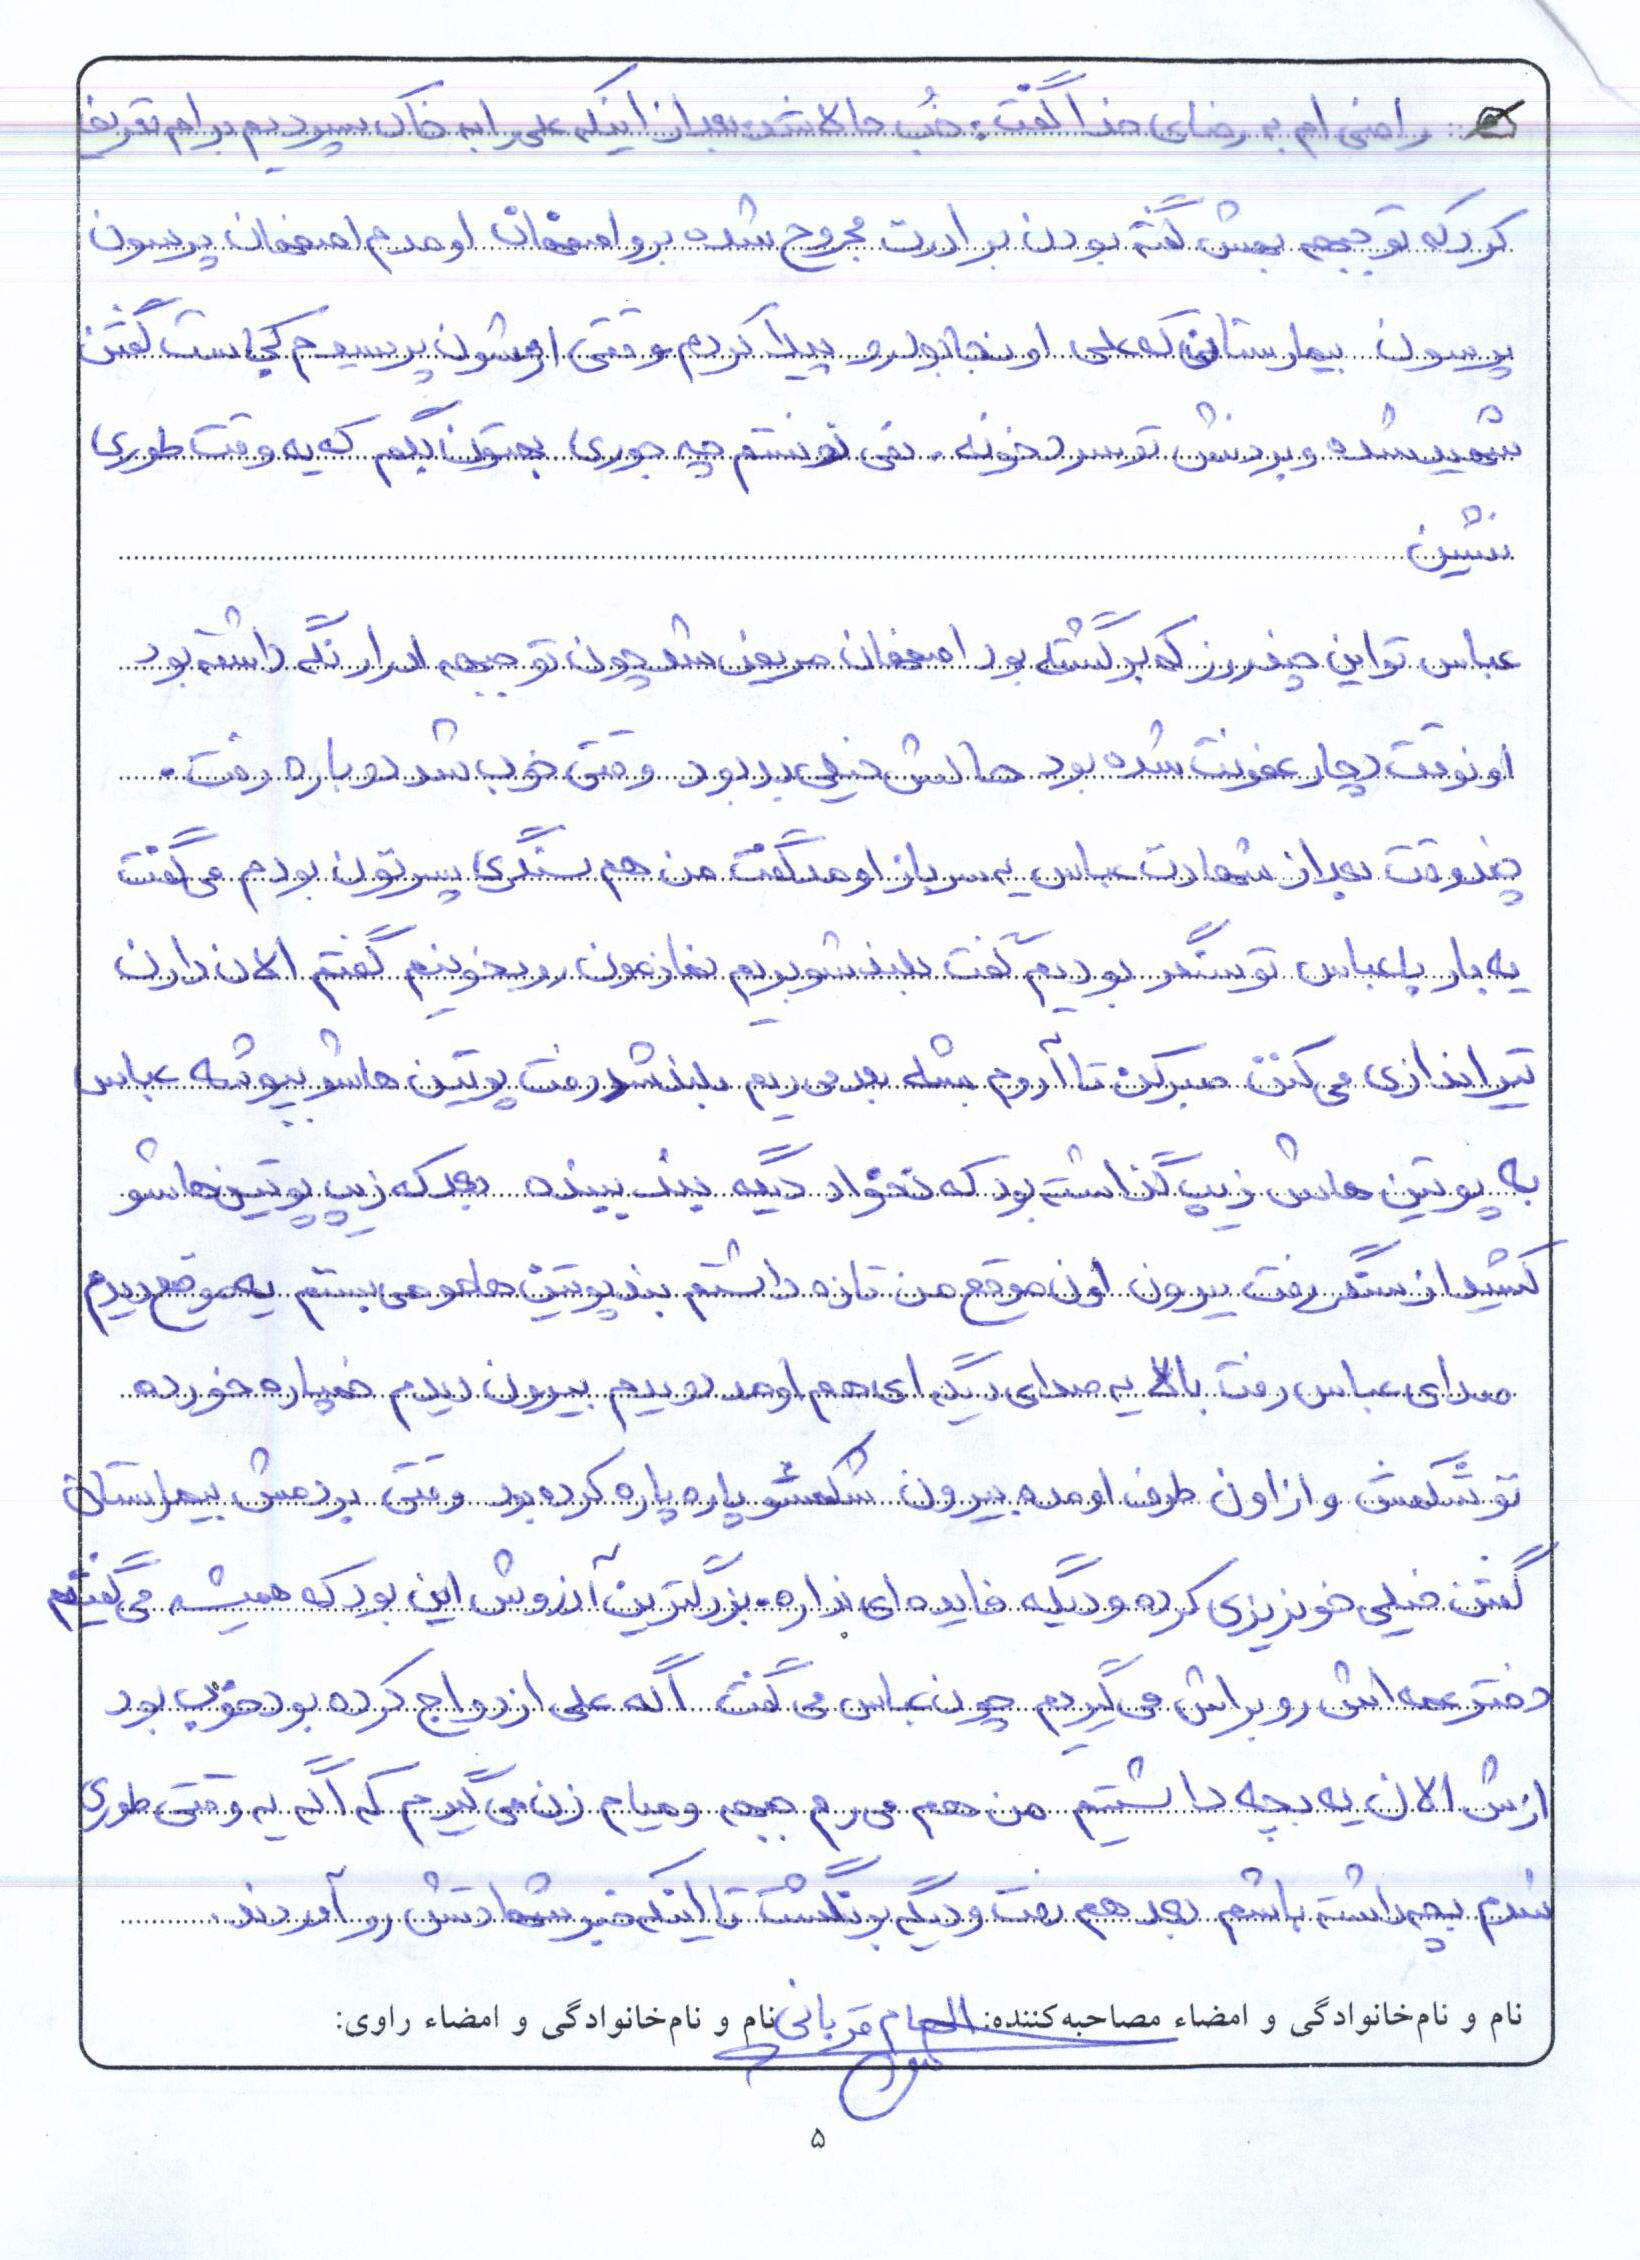 راضی ام به رضای خدا گفت: خُب حالا شد. بعد از اینکه علی را به خاک سپردیم برام تعریف
کرد که تو جبهه بهش گفته بودن برادرت مجروح شده برو اصفهان اومدم اصفهان پرسون
پرسون بیمارستانی که علی اونجا بود رو پیدا کردم وقتی ازشون پرسیدم کجاست گفتن
شهید شده و بردنش تو سردخونه. نمی تونستم چه جوری بهتون بگم که یه وقت طوری
نشین
عباس تو این چند روز که برگشته بود اصفهان مریض شد چون تو جبهه ادرار نگه داشته بود
اونوقت دچار عفونت شده بود حالش خیلی بد بود وقتی خوب شد دوباره رفت.
چند وقت بعد از شهادت عباس یه سرباز اومد گفت من هم سنگری پسرتون بودم می گفت
یه بار با عباس تو سنگر بودیم گفت بلند شو بریم نمازمون رو بخونیم گفتم الان دارن
تیراندازی می کنن صبر کن تا آروم بشه بعد می ریم بلند شد رفت پوتین هاشو بپوشه عباس
به پوتین هاش زیپ گذاشته بود که نخواد دیگه بند ببنده بعد که زیپ پوتین هاشو
کشید از سنگر رفت بیرون اون موقع من تازه داشتم بند پوتین هامو می بستم یه موقع دیدم
صدای عباس رفت بالا یه صدای دیگه ای هم اومد دویدم بیرون دیدم خمپاره خورده
تو شکمش و از اون طرف اومده بیرون شکمشو پاره پاره کرده بود وقتی بردمش بیمارستان
گفتن خیلی خونریزی کرده و دیگه فایده ای نداره. بزرگترین آرزوش این بود که همیشه می گفتم
دختر عمه اش رو براش می گیرم چون عباس می گفت اگه علی ازدواج کرده بود خوب بود
ازش الان یه بچه داشتیم من هم می رم جبهه و میام زن می گیرم که اگه یه وقتی طوری
شدم بچه داشته باشم بعد هم رفت و دیگه برنگشت تا اینکه خبر شهادتش رو آوردند.
نام و نام‌خانوادگی و امضاء مصاحبه‌کننده: الهام قربانی نام و نام‌خانوادگی و امضاء راوی:
۵